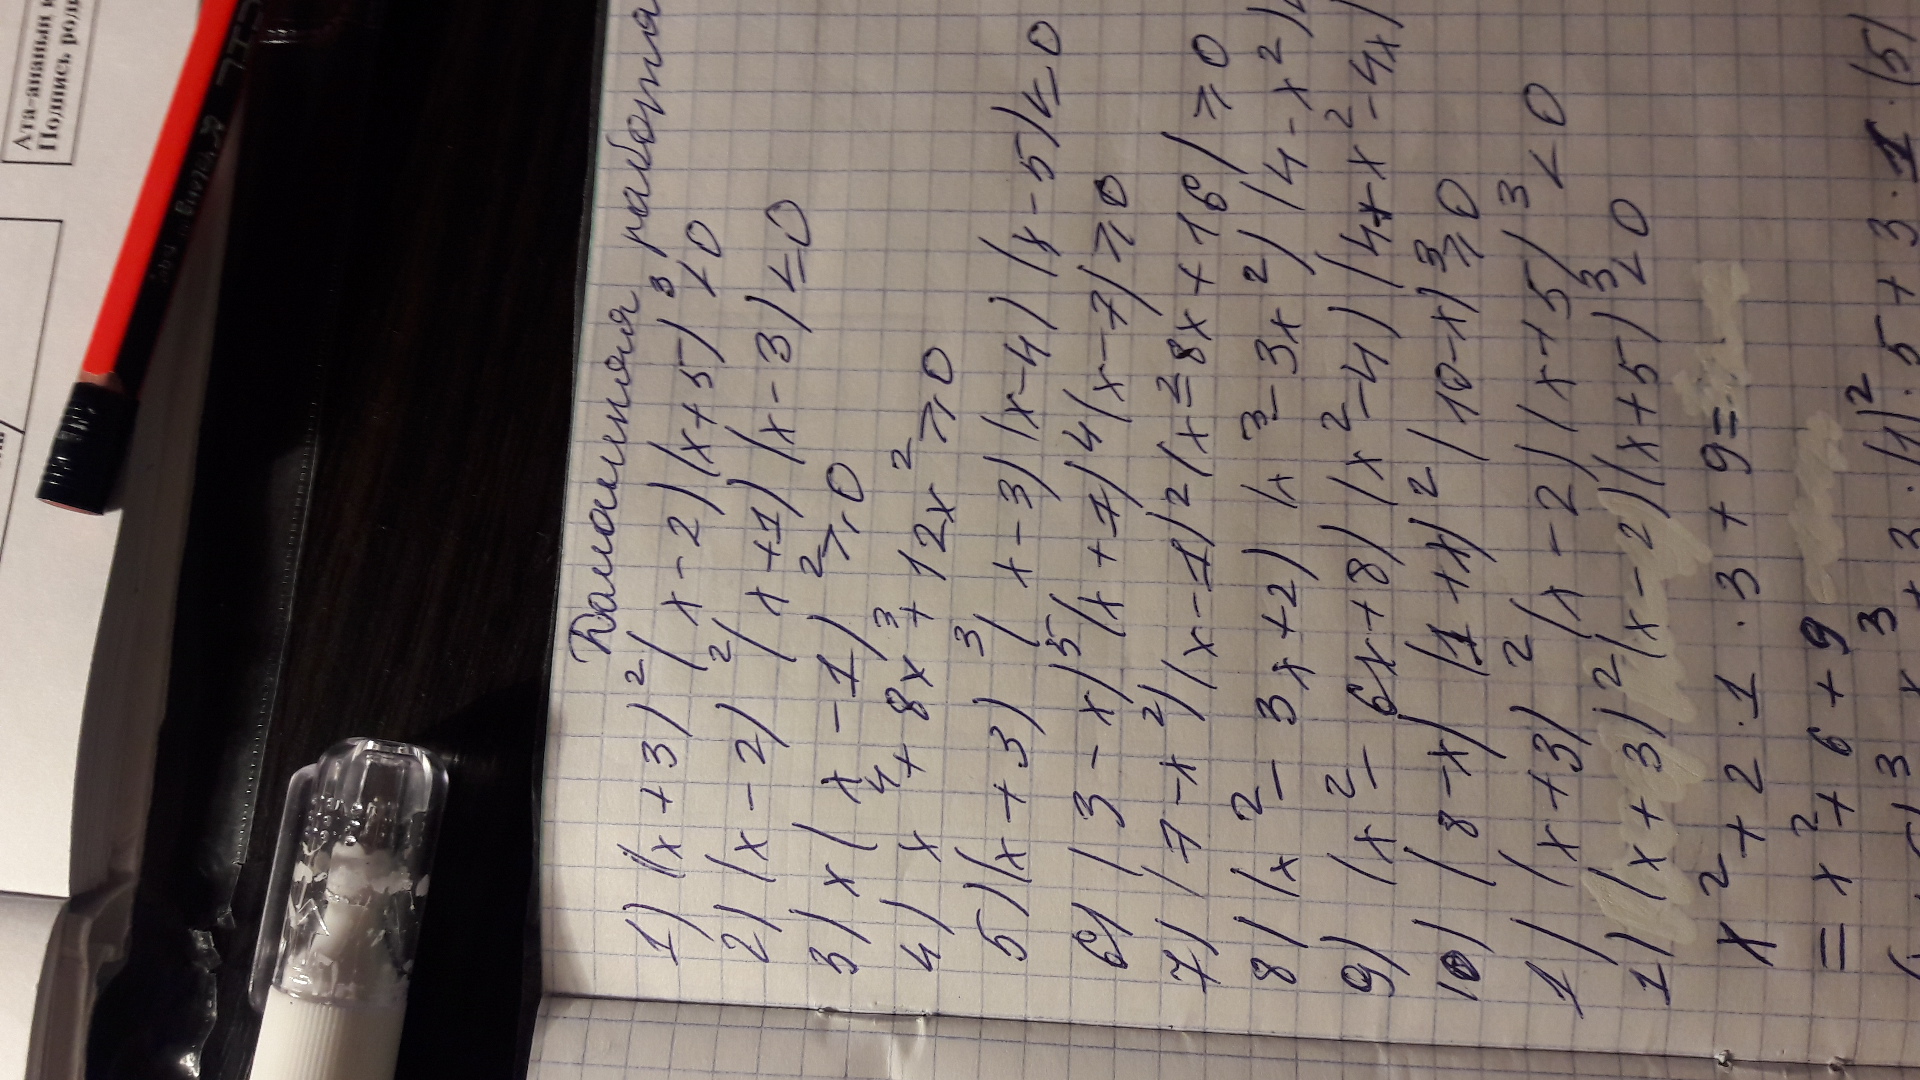 Ата-ананың
Подпись род
Домашняя работа
1) (x+3)²(x-2)(x+5)³<0
2) (x-2)²(x+1)(x-3)≤0
3) x(x-1)²≥0
4) x⁴+8x³+12x²≥0
5) (x+3)³(x-3)(x-4)(x-5)≤0
6) (3-x)⁵(x+7)4(x-7)≥0
7) (7-x²)(x-1)²(x²-8x+16)≥0
8) (x²-3x+2)(x³-3x²)(4-x²)
9) (x²-6x+8)(x²-4)(4+x²-4x)
10) (8-x)(1+x)²(10-x)³≥0
1) (x+3)²(x-2)(x+5)³<0
1) (x+3)²(x-2)(x+5)³<0
x²+2·1·3+9=
=x²+6+9